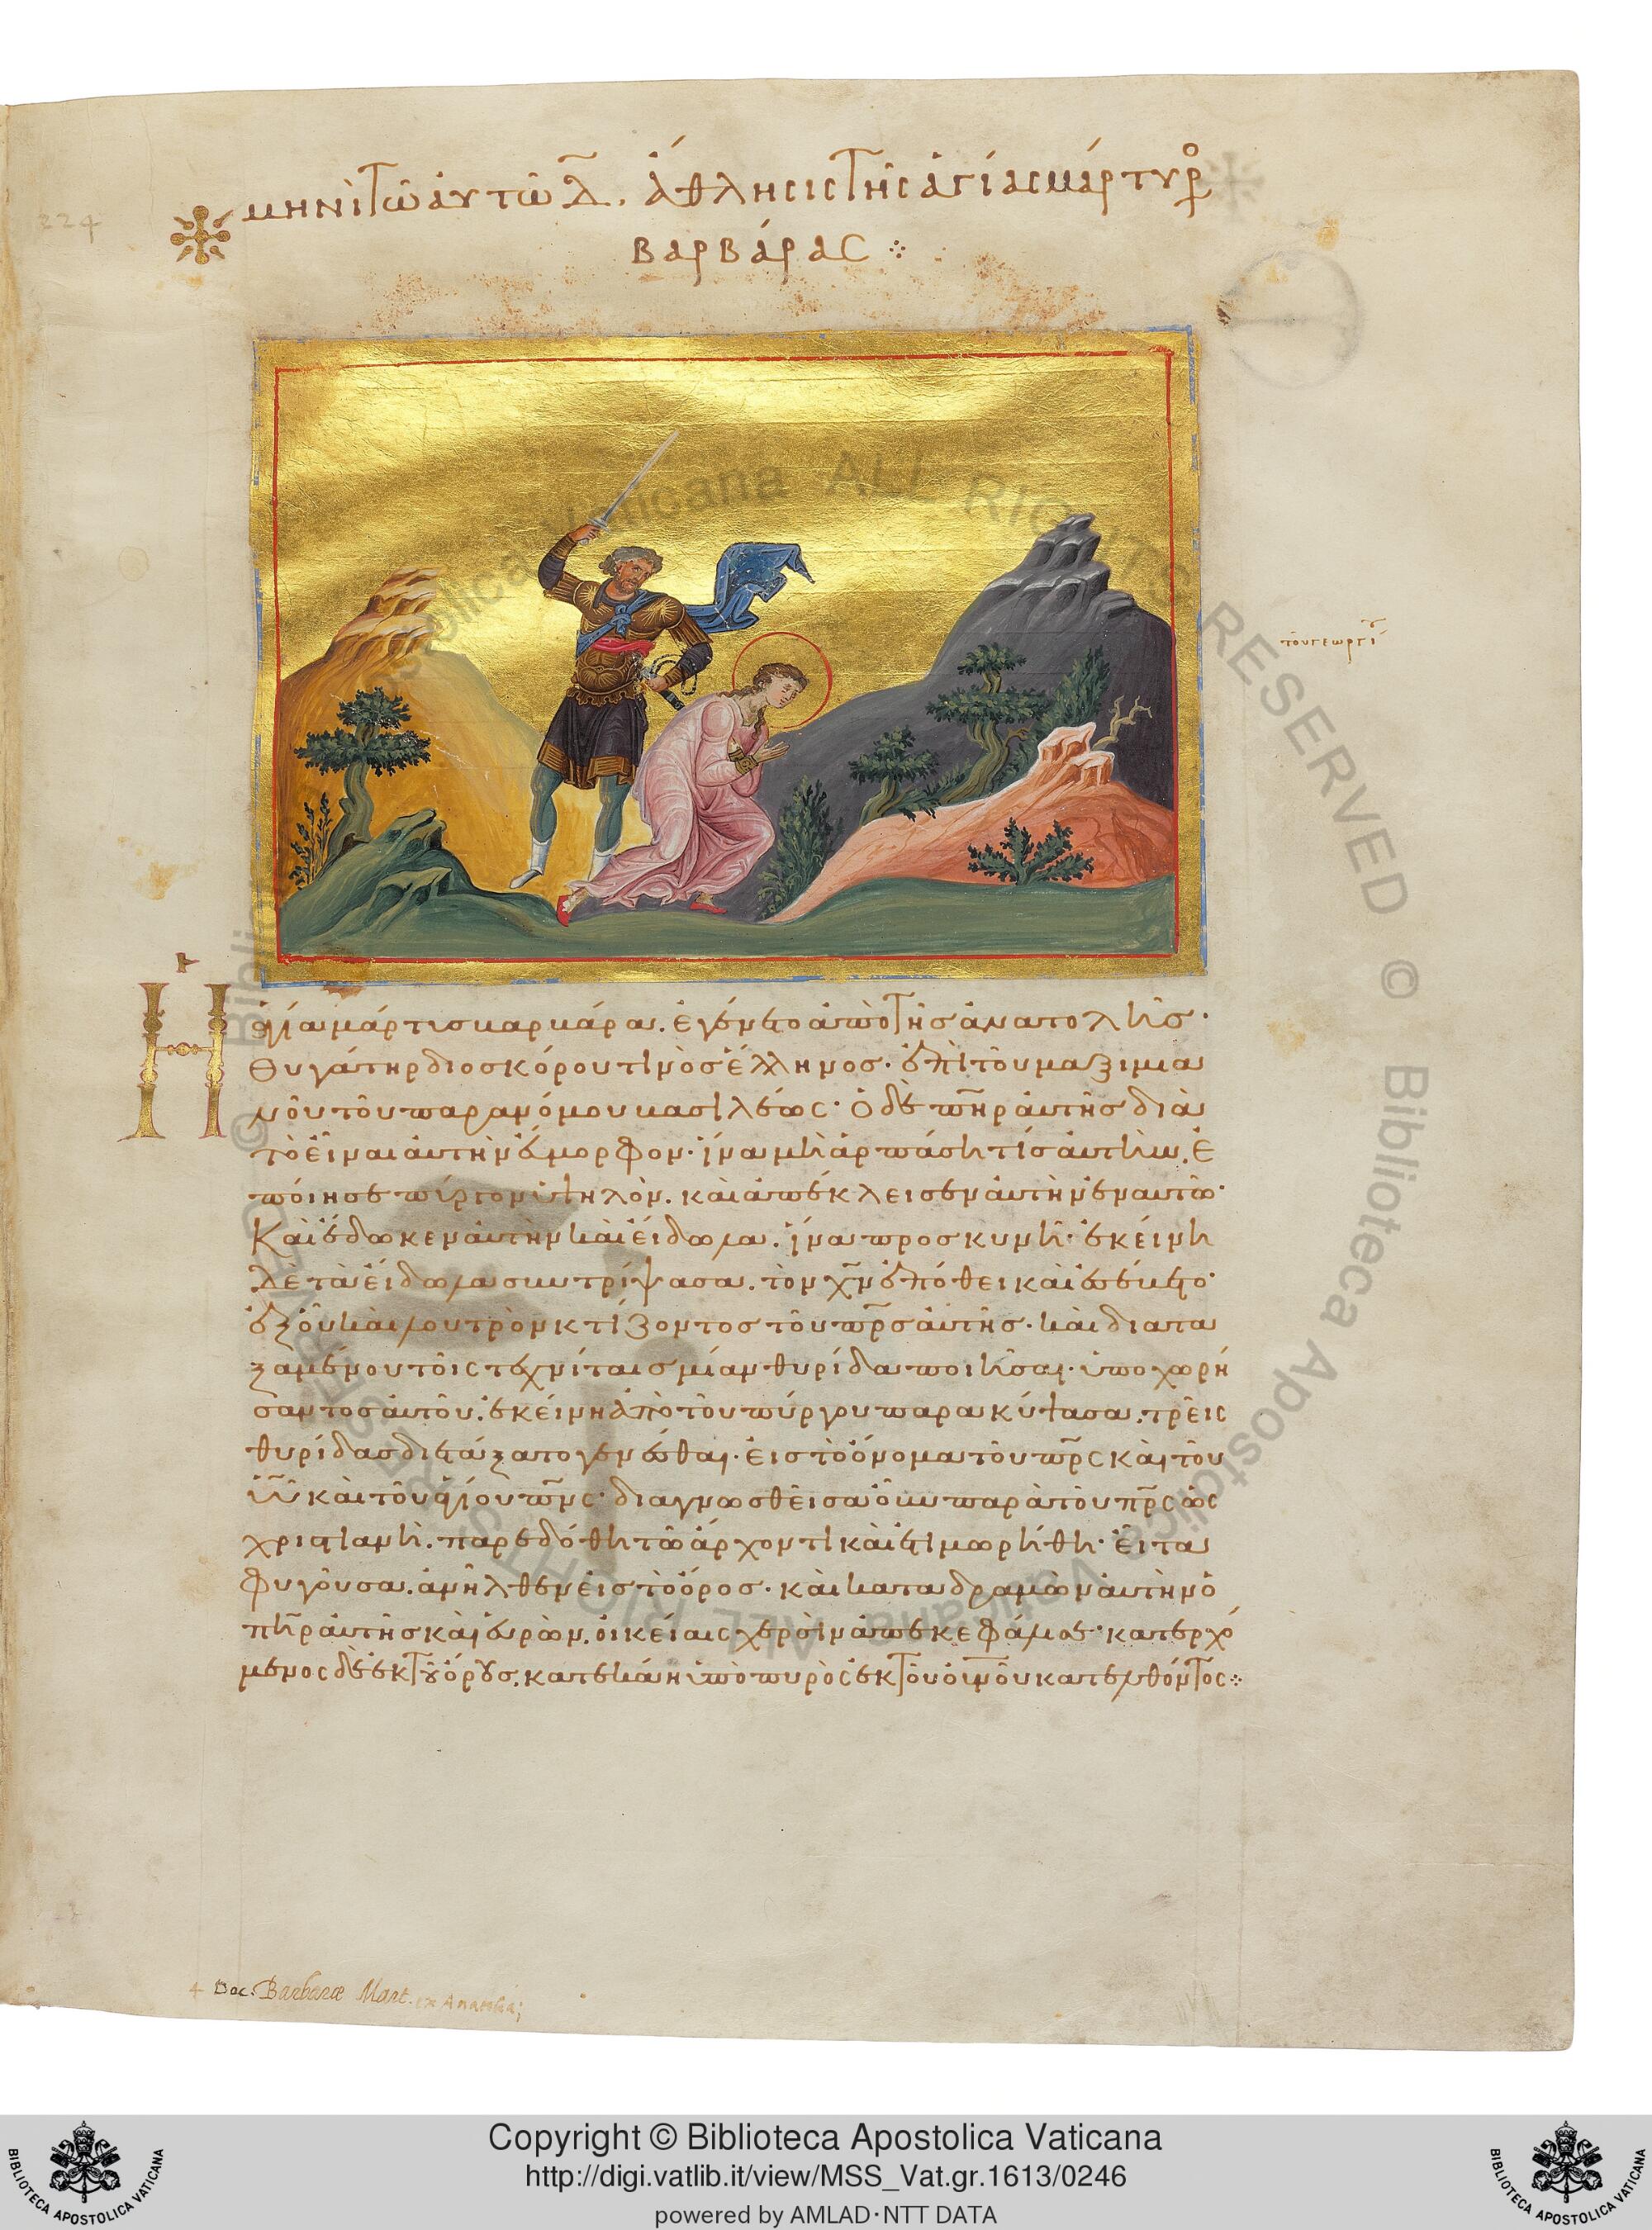 224
μηνὶ τῶ αὐτῶ δ̅. ἄθλησις τῆς ἁγίας μάρτυρο
βαρβάρας ⁘
τοῦ γεωργί
Ἡ ἁγία μάρτυς βαρβάρα. ἐγένετο ἀπὸ τῆς ἀνατολῆς·
θυγάτηρ διοσκόρου τινὸς ἕλληνος· ἐπὶ τοῦ μαξιμια
νοῦ τοῦ παρανόμου βασιλέως· ὁ δὲ π̅η̅ρ αὐτῆς διὰ
τὸ εἶναι αὐτὴν εὔμορφον· ἵνα μὴ ἁρπάση τίς αὐτὴν. ἐ
ποίησε πύργον ὑψηλὸν. καὶ ἀπέκλεισεν αὐτὴν ἐν αυτῶ·
Καὶ ἔδωκεν αὐτὴν καὶ εἴδωλα. ἵνα προσκυνῆ· ἐκείνη
δὲ τὰ εἴδωλα συντρίψασα. τὸν χ̅ν ἐπόθει καὶ ἐσέβετο·
ἐξ οὗ καὶ λουτρὸν κτίζοντος τοῦ π̅ρ̅ς αὐτῆς· καὶ διατα
ξαμένου τοῖς τεχνίταις μίαν θυρίδα ποιῆσαι· ὑποχωρή
σαντος αὐτοῦ. ἐκείνη ἀπὸ τοῦ πύργου παρακύψασα. τρεῖς
θυρίδας διετάξατο γενέσθαι· εἰς τὸ ὄνομα τοῦ π̅ρ̅ς καὶ τοῦ
υ̅ι̅υ καὶ τοῦ ἁγίου π̅ν̅ς· διαγνωσθεῖσα οὖν παρὰ τοῦ π̅ρ̅ς ὡς
χριστιανὴ. παρεδόθη τῶ ἄρχοντι καὶ ἐτιμωρήθη· εἶτα
φυγοῦσα. ἀνῆλθεν εἰς τὸ ὄρος· καὶ καταδραμὼν αὐτὴν ὁ
π̅η̅ρ αὐτῆς καὶ εὑρὼν. οἰκείαις χερσὶν ἀπεκεφάλισε· κατερχό
μενος δὲ ἐκ τοῦ ὄρους. κατεκάη ὑπὸ πυρὸς ἐκ τοῦ οὐ̅ν̅οῦ κατελθόντος ⁘
4 Dec. Barbaræ Mart. ex Anatolia;
© Biblioteca Apostolica Vaticana ALL RIGHTS RESERVED © Biblioteca Apostolica Vaticana ALL RIGHTS RESERVED
Copyright © Biblioteca Apostolica Vaticana
http://digi.vatlib.it/view/MSS_Vat.gr.1613/0246
powered by AMLAD·NTT DATA
BIBLIOTECA APOSTOLICA VATICANA
BIBLIOTECA APOSTOLICA VATICANA